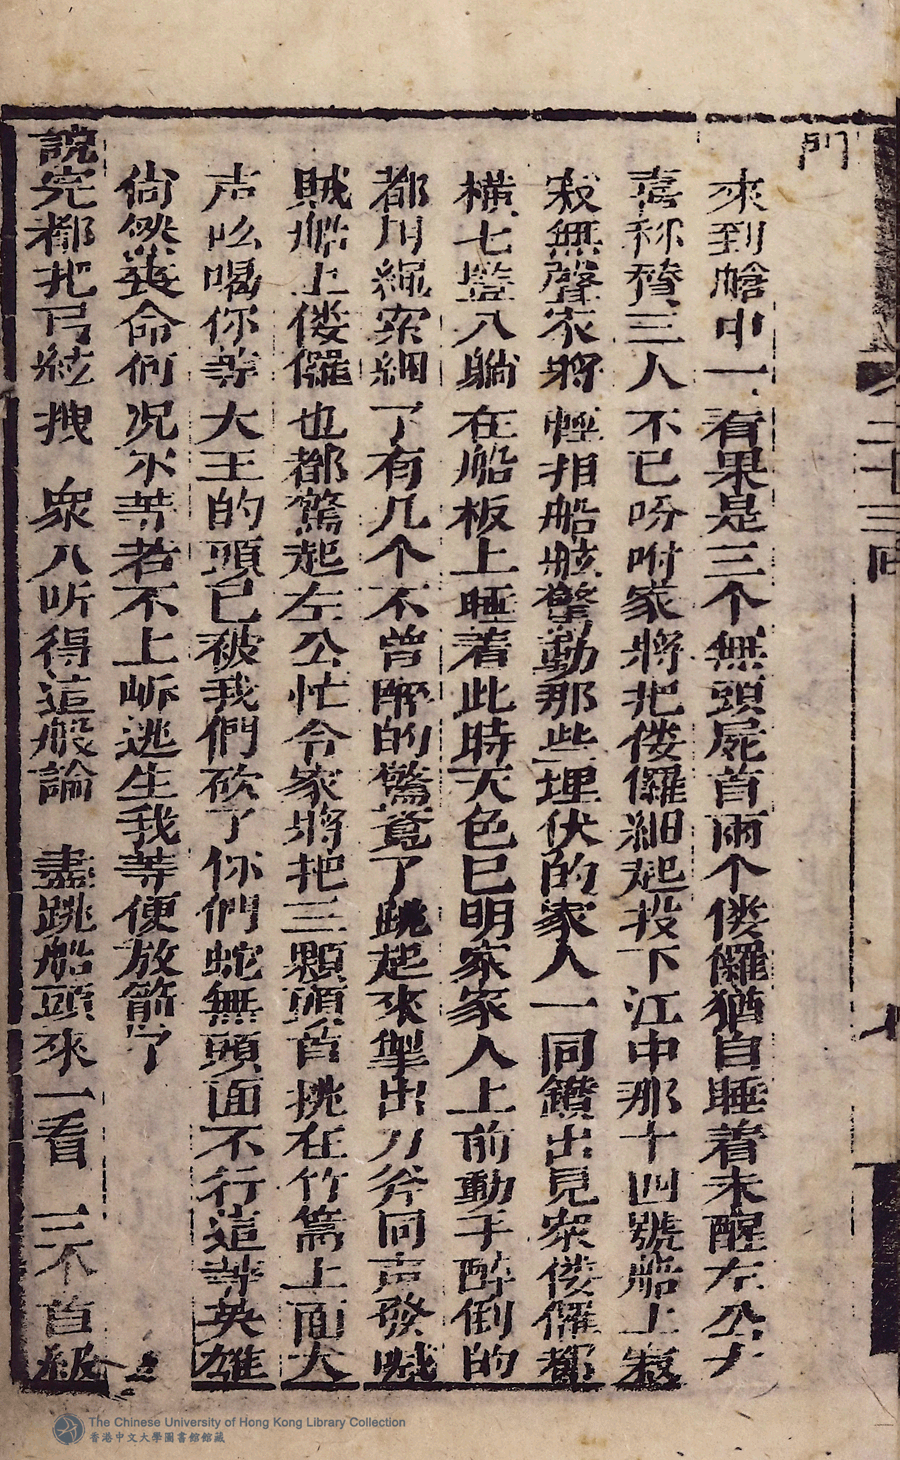 二十三回
門
來到艙中一看果是三个無頭屍首兩个僂儸猶自睡着未醒左公大
喜称賛三人不已吩咐家將把僂儸綑起投下江中那十四號船上寂
寂無聲家將輕扣船舷驚動那些埋伏的家人一同鑚出見衆僂儸都
橫七豎八躺在船板上睡着此時天色已明家家人上前動手醉倒的
都用繩索綑了有几个不曾醉的驚覚了跳起來掣出刀斧同声發喊
賊船上僂儸也都驚起左公忙令家將把三顆頭首挑在竹篙上面大
声吆喝你等大王的頭已被我們砍了你們蛇無頭而不行這等英雄
尚然喪命何况尔等若不上岍逃生我等便放箭了
說完都把弓絃拽 衆人听得這般論 盡跳船頭來一看 三个首級
The Chinese University of Hong Kong Library Collection
香港中文大學圖書館館藏